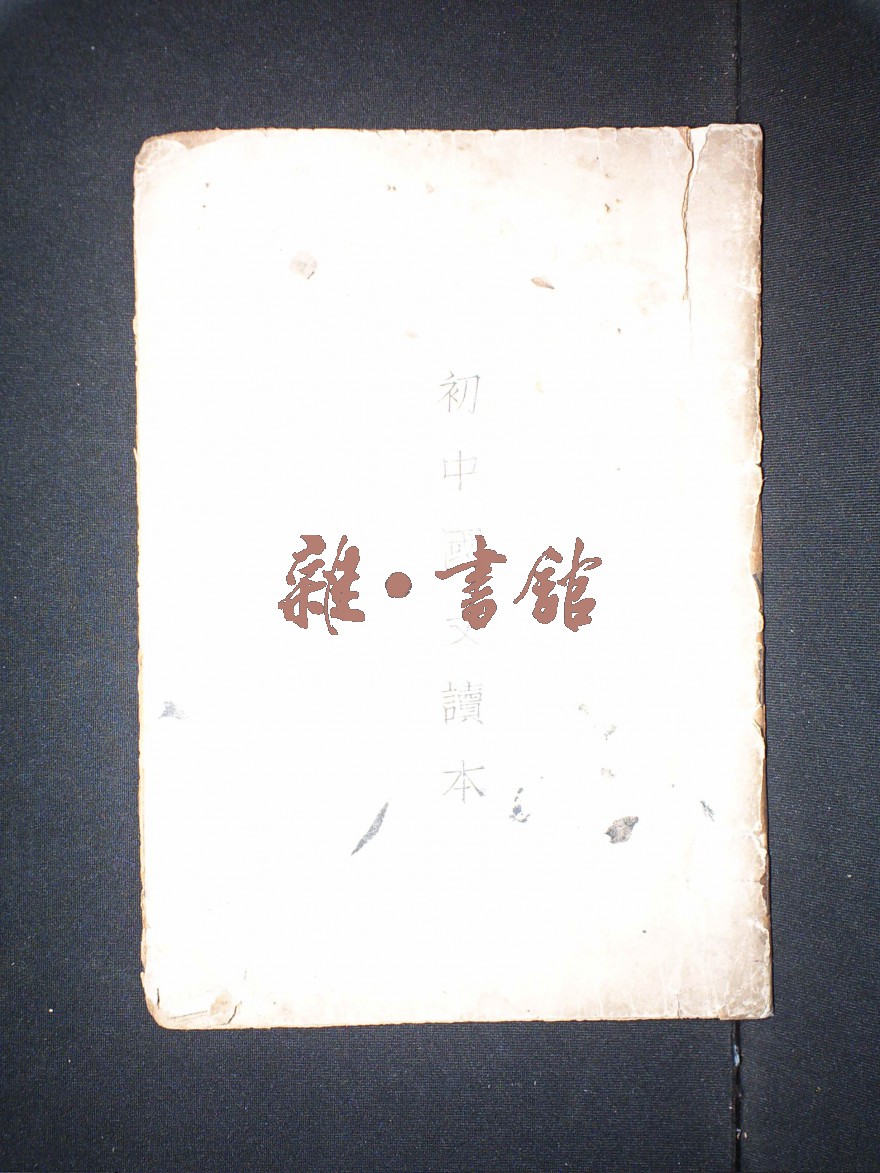 初中國文讀本
雜·書館